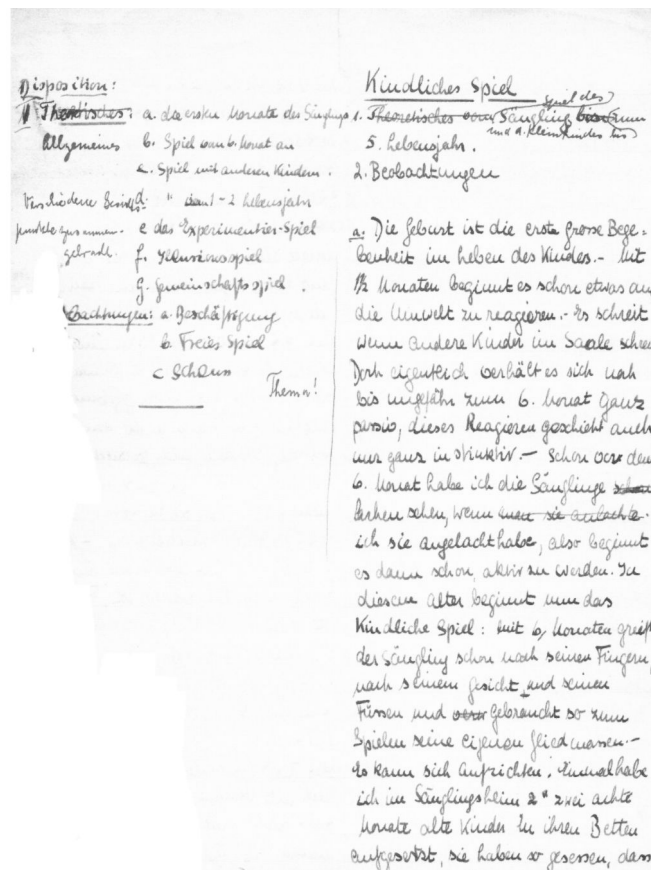 Disposition:
I Theoretisches: a. die ersten Monate des Säuglings
Allgemeines b. Spiel vom 6. Monat an
c. Spiel mit anderen Kindern.
Verschiedene d. " 1-2 Lebensjahr
punkte zusammen- e das Experimentier-Spiel
gebracht. f. Illusionsspiel
g. Gemeinschaftsspiel.
Beobachtungen: a. Beschäftigung
b Freies Spiel
c Schluss
Thema!
Kindliches Spiel
1. Theoretisches Spiel des Säugling zum
und d. Kleinkindes bis
5. Lebensjahr.
2. Beobachtungen
a: Die Geburt ist die erste grosse Bege=
benheit im Leben des Kindes.- Mit
1½ Monaten beginnt es schon etwas auf
die Umwelt zu reagieren.- Es schreit
wenn andere Kinder im Saale schrei
Doch eigentlich verhält es sich noch
bis ungefähr zum 6. Monat ganz
passiv, dieses Reagieren geschieht auch
nur ganz instinktiv.- Schon vor dem
6. Monat habe ich die Säuglinge schon
lachen sehen, wenn man sie anlachte.
ich sie angelacht habe, also beginnt
es dann schon, aktiv zu werden. In
diesem Alter beginnt nun das
Kindliche Spiel: Mit 6, Monaten greift
der Säugling schon nach seinen Fingern,
nach seinem Gesicht und seinen
Füssen und gebraucht so zum
Spielen seine eigenen Gliedmassen.-
Es kann sich aufrichten. Einmal habe
ich im Säuglingsheim 2" zwei achte
Monate alte Kinder in ihren Betten
aufgesetzt, sie haben so gesessen, dass